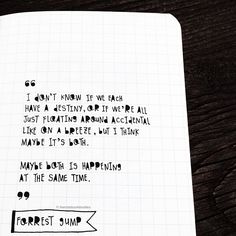 “
I DON'T KNOW IF WE EACH
HAVE A DESTINY, OR IF WE'RE ALL
JUST FLOATING AROUND ACCIDENTAL
LIKE ON A BREEZE, BUT I THINK
MAYBE IT'S BOTH.
MAYBE BOTH IS HAPPENING
AT THE SAME TIME.
”
FORREST GUMP